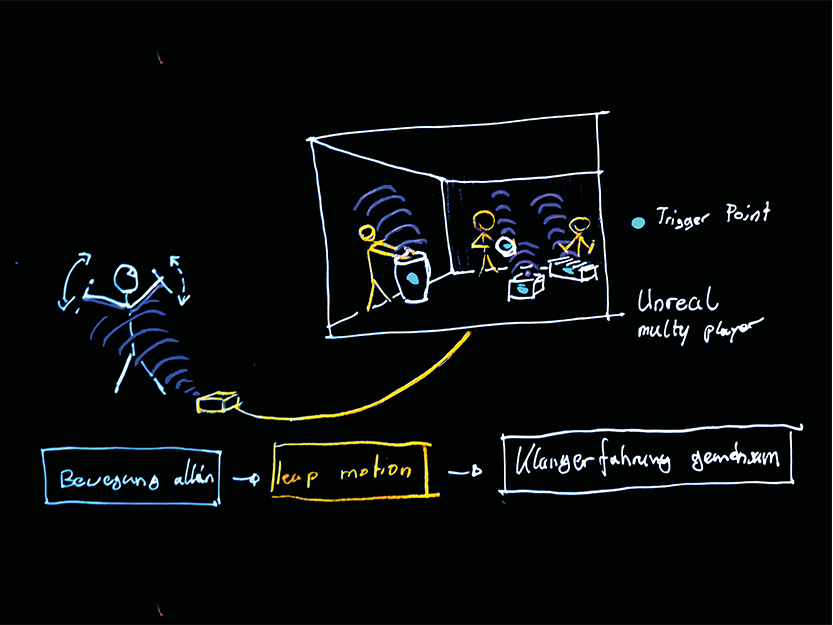 Trigger Point
Unreal
multy player
Bewegung allein
leap motion
Klangerfahrung gemeinsam